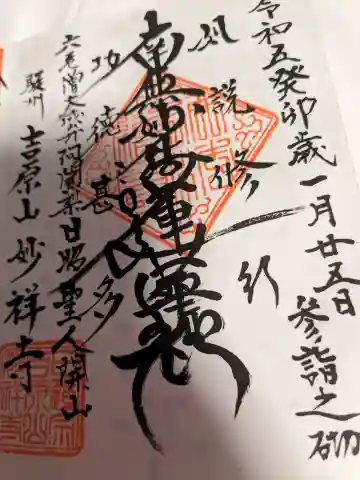 令和五癸卯歳一月廿五日参詣之砌
如説修行
南無妙法蓮華経
功徳甚多
六老僧大成弁阿闍梨日昭聖人開山
駿州吉原山妙祥寺